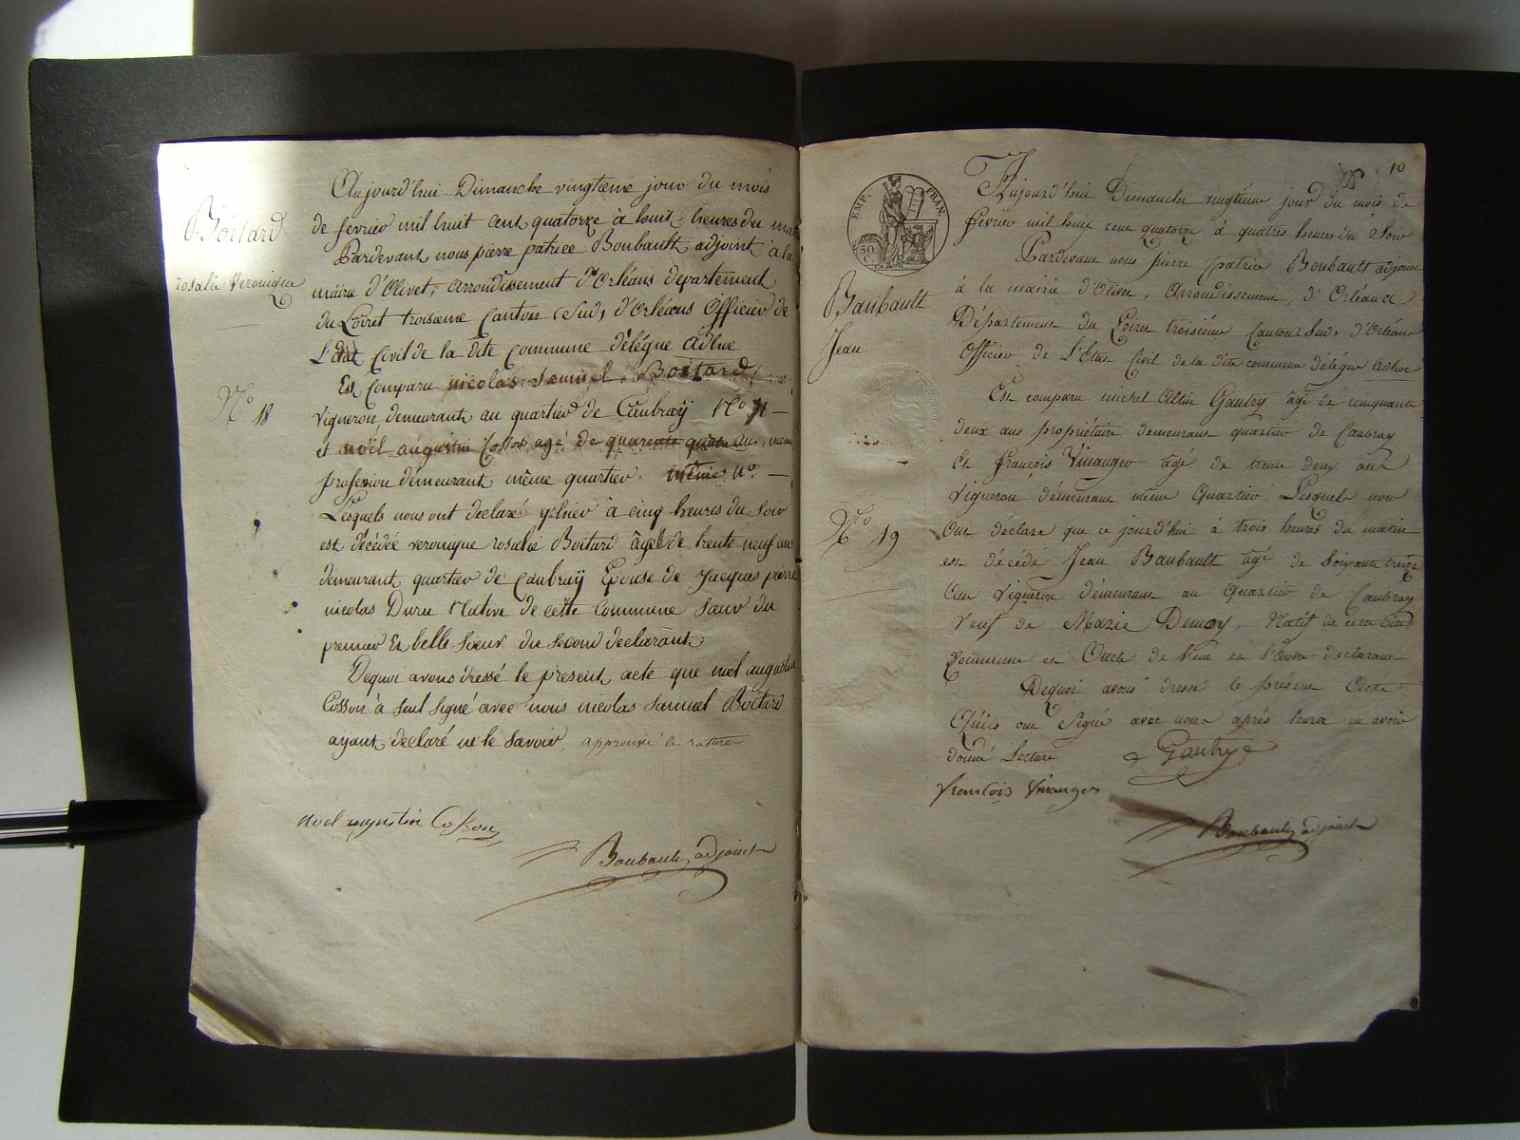 Boitard
rosalie veronique
N.o 18
Aujourd'hui Dimanche vingtieme jour du mois
de fevrier mil huit cent quatorze à heures du
Pardevant nous pierre patrice Boubault adjoint à la
mairie d'Olivet, arrondissement d'Orléans departement
du Loiret troisieme Canton (Sud) d'Orléans Officier de
L'état Civil de la dite Commune délégué Adhoc
Est Comparu nicolas Samuel Boitard
vigneron demeurant au quartier de Caubray N.o
et noël augustin Cosson agé de quarante quatre ans même
profession démeurant même quartier même N.o
Lesquels nous ont declaré qu'hier à cinq heures du Soir
est décédée veronique rosalie Boitard âgée de trente neuf ans
demeurant quartier de Caubray Epouse de Jacques pierre
nicolas Duru Native de cette Commune Soeur du
premier Et belle Soeur du Second declarant
Dequoi avons dressé le present acte que noel augustin
Cosson à Seul Signé avec nous nicolas Samuel Boitard
ayant declaré ne le Savoir, approuvé la rature
noel augustin Cosson
Boubault adjoint
10
EMP. FRAN.
50
Baubault
Jean
N.o 19
Aujourd'hui Dimanche vingtième jour du mois de
fevrier mil huit cent quatorze à quatre heures du Soir
Pardevant nous pierre patrice Boubault adjoint
à la mairie d'Olivet, Arrondissement d'Orléans
Département du Loiret troisième Canton Sud d'Orléans
Officier de L'Etat Civil de la dite commune délégué adhoc
Est comparu michel Gautry agé de cinquante
deux ans propriétaire demeurant quartier de Caubray
Et françois Vinauger agé de trente deux ans
Vigneron démeurant même Quartier Lesquels nous
Ont déclaré que ce jourd'hui à trois heures du matin
est décédé Jean Baubault agé de Soixante treize
Ans Vigneron démeurant au Quartier de Caubray
Veuf de Marie Natif de
Commune et Oncle de l'un et l'autre declarant
Dequoi avons dressé le présent Acte
Qu'ils ont Signé avec nous après leur en avoir
donné Lecture
Gautry
françois Vinauger
Boubault adjoint